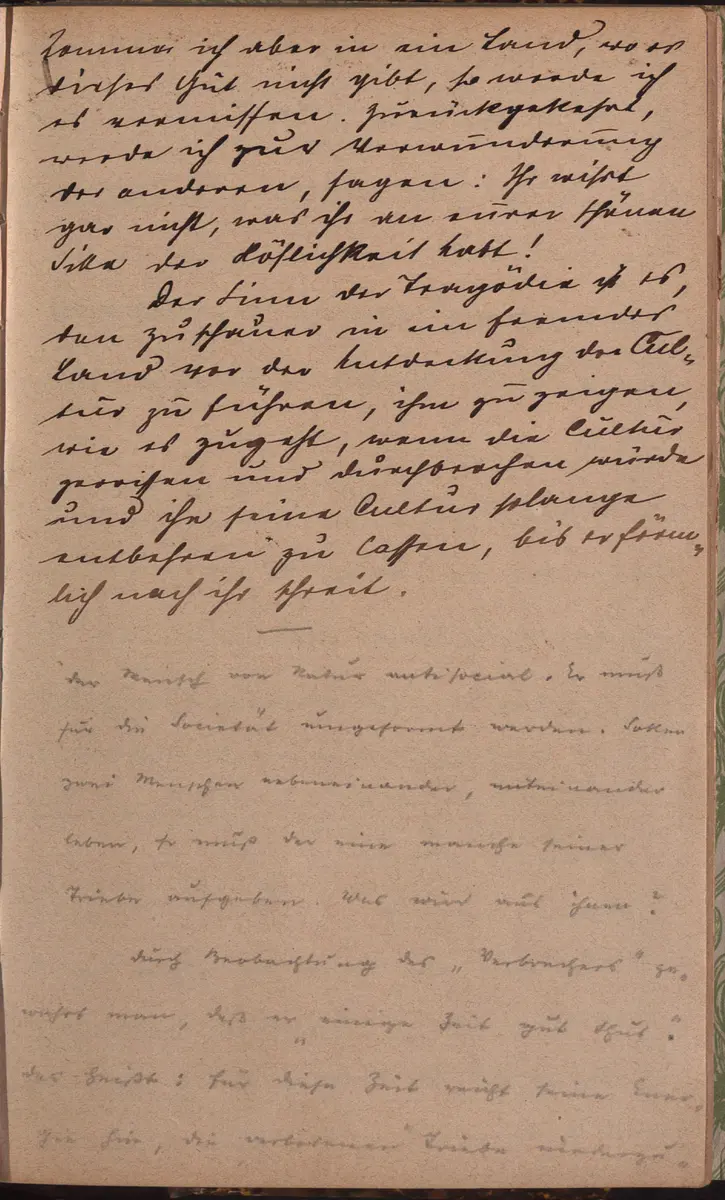 komme ich aber in ein Land, wo es
dieses Gut nicht gibt, so werde ich
es vermissen. Zurückgekehrt,
werde ich zur Verwunderung
der anderen, sagen: Ihr wißt
gar nicht, was ihr an eurer schönen
Sitte der Höflichkeit habt!
Der Sinn der Tragödie ist es,
den Zuschauer in ein fremdes
Land vor der Entdeckung der Cul-
tur zu führen, ihm zu zeigen,
wie es zugeht, wenn die Cultur
zerrissen und durchbrochen würde
und ihn seine Cultur solange
entbehren zu lassen, bis er förm-
lich nach ihr schreit.
der Mensch von Natur antisocial. Er muß
für die Societät umgeformt werden. Sollen
zwei Menschen nebeneinander, miteinander
leben, so muß der eine manche seiner
Triebe aufgeben. Was wird aus ihnen?
durch Beobachtung des „Verbrechers" ge-
wahrt man, daß er „einige Zeit gut thut".
das heißt: für diese Zeit reicht seine Ener-
gie hin, die verbotenen Triebe niederzu-